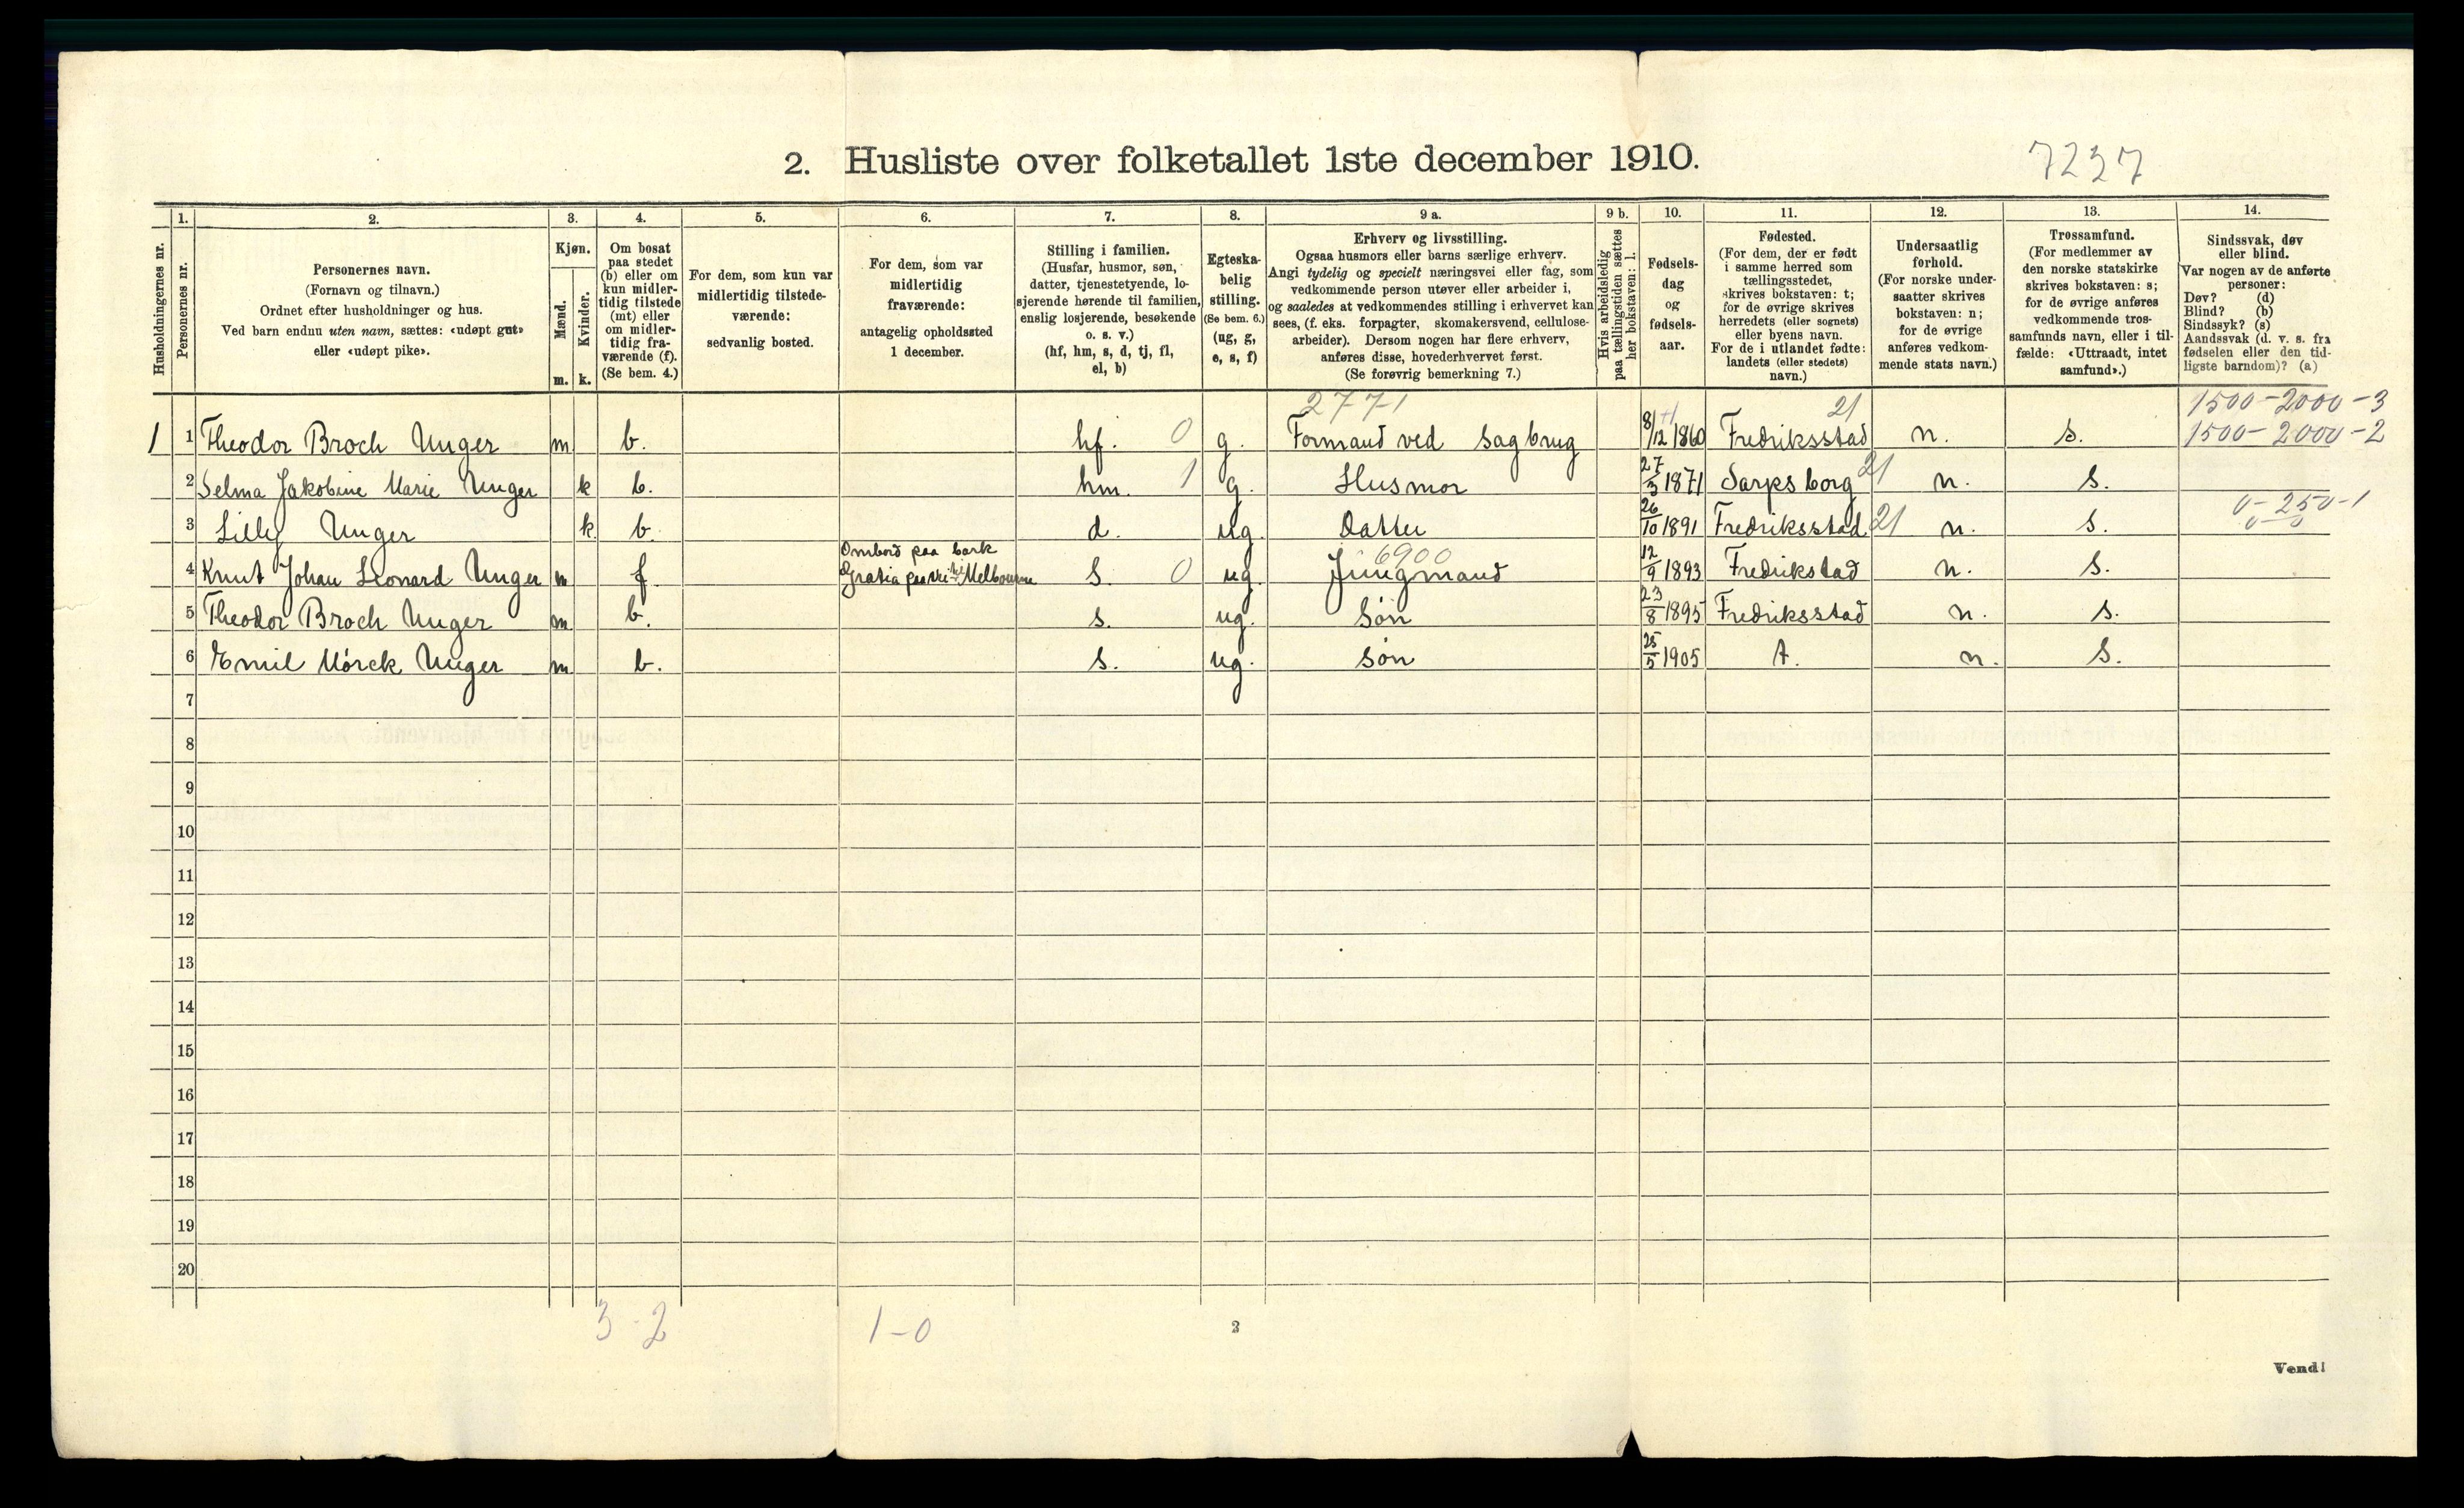 2. Husliste over folketallet 1ste december 1910.
7237
Husholdningernes nr.
1.
Personernes nr.
2.
Personernes navn.
(Fornavn og tilnavn.)
Ordnet efter husholdninger og hus.
Ved barn endnu uten navn, sættes: «udøpt gut»
eller «udøpt pike».
3.
Kjøn.
Mænd.
Kvinder.
m. k.
4.
Om bosat
paa stedet
(b) eller om
kun midler-
tidig tilstede
(mt) eller
om midler-
tidig fra-
værende (f).
(Se bem. 4.)
5.
For dem, som kun var
midlertidig tilstede-
værende:
sedvanlig bosted.
6.
For dem, som var
midlertidig
fraværende:
antagelig opholdssted
1 december.
7.
Stilling i familien.
(Husfar, husmor, søn,
datter, tjenestetyende, lo-
sjerende hørende til familien,
enslig losjerende, besøkende
o. s. v.)
(hf, hm, s, d, tj, fl,
el, b)
8.
Egteska-
belig
stilling.
(Se bem. 6.)
(ug, g,
e, s, f)
9 a.
Erhverv og livsstilling.
Ogsaa husmors eller barns særlige erhverv.
Angi tydelig og specielt næringsvei eller fag, som
vedkommende person utøver eller arbeider i,
og saaledes at vedkommendes stilling i erhvervet kan
sees, (f. eks. forpagter, skomakersvend, cellulose-
arbeider). Dersom nogen har flere erhverv,
anføres disse, hovederhvervet først.
(Se forøvrig bemerkning 7.)
9 b.
Hvis arbeidsledig
paa tællingstiden sættes
her bokstaven: l.
10.
Fødsels-
dag
og
fødsels-
aar.
11.
Fødested.
(For dem, der er født
i samme herred som
tællingsstedet,
skrives bokstaven: t;
for de øvrige skrives
herredets (eller sognets)
eller byens navn.
For de i utlandet fødte:
landets (eller stedets)
navn.)
12.
Undersaatlig
forhold.
(For norske under-
saatter skrives
bokstaven: n;
for de øvrige
anføres vedkom-
mende stats navn.)
13.
Trossamfund.
(For medlemmer av
den norske statskirke
skrives bokstaven: s;
for de øvrige anføres
vedkommende tros-
samfunds navn, eller i til-
fælde: «Uttraadt, intet
samfund».)
14.
Sindssvak, døv
eller blind.
Var nogen av de anførte
personer:
Døv? (d)
Blind? (b)
Sindssyk? (s)
Aandssvak (d. v. s. fra
fødselen eller den tid-
ligste barndom)? (a)
2771 21 1500-2000-3
1 1 Theodor Broch Unger m b. hf. 0 g. Formand ved Sagbrug 8/12 1860 Fredriksstad n. s. 1500-2000-2
2 Selma Jakobine Marie Unger k b. hm. 1 g. Husmor 27/3 1871 Sarpsborg 21 n. s.
0-250-1
3 Lilly Unger k b. d. ug. Datter 26/10 1891 Fredriksstad 21 n. s. 0-0
Ombord paa bark 6900
4 Knut Johan Leonard Unger m f. Gratia paa Melbourne s. 0 ug. Jungmand 12/9 1893 Fredrikstad n. s.
5 Theodor Broch Unger m b. s. ug. Søn 23/8 1895 Fredriksstad n. s.
6 Emil Mörck Unger m b. s. ug. Søn 25/5 1905 t. n. s.
7
8
9
10
11
12
13
14
15
16
17
18
19
20
3-2 1-0
2
Vend!